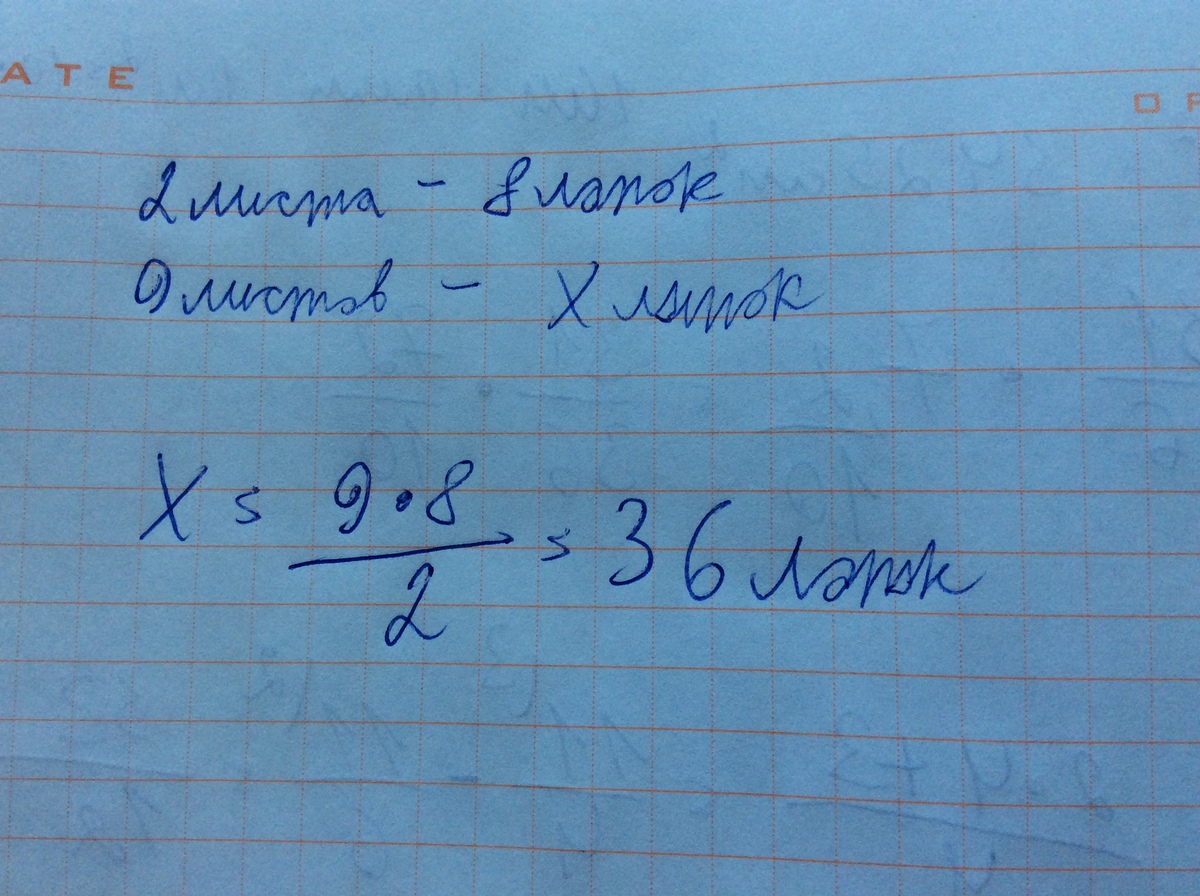 ATE
OR
2 листа - 8 лапок
9 листов - X лапок
X = 9·8 / 2 = 36 лапок